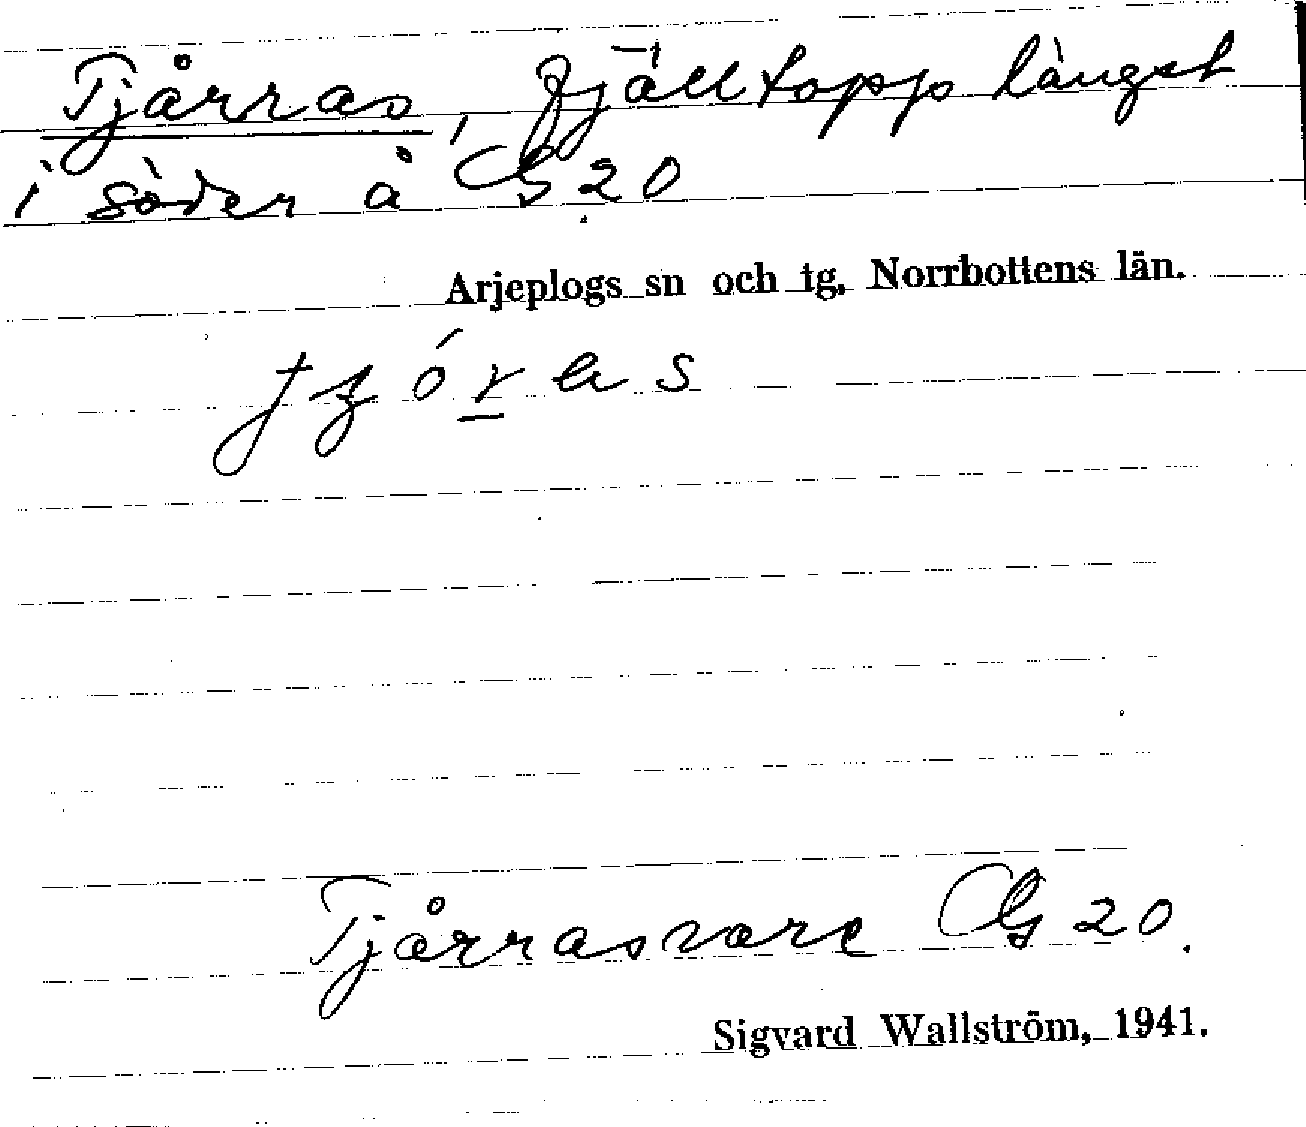 Tjårras, fjälltopp längst
i söder å G 20
Arjeplogs sn och tg, Norrbottens län.
Tjårrasvare G 20.
Sigvard Wallström, 1941.